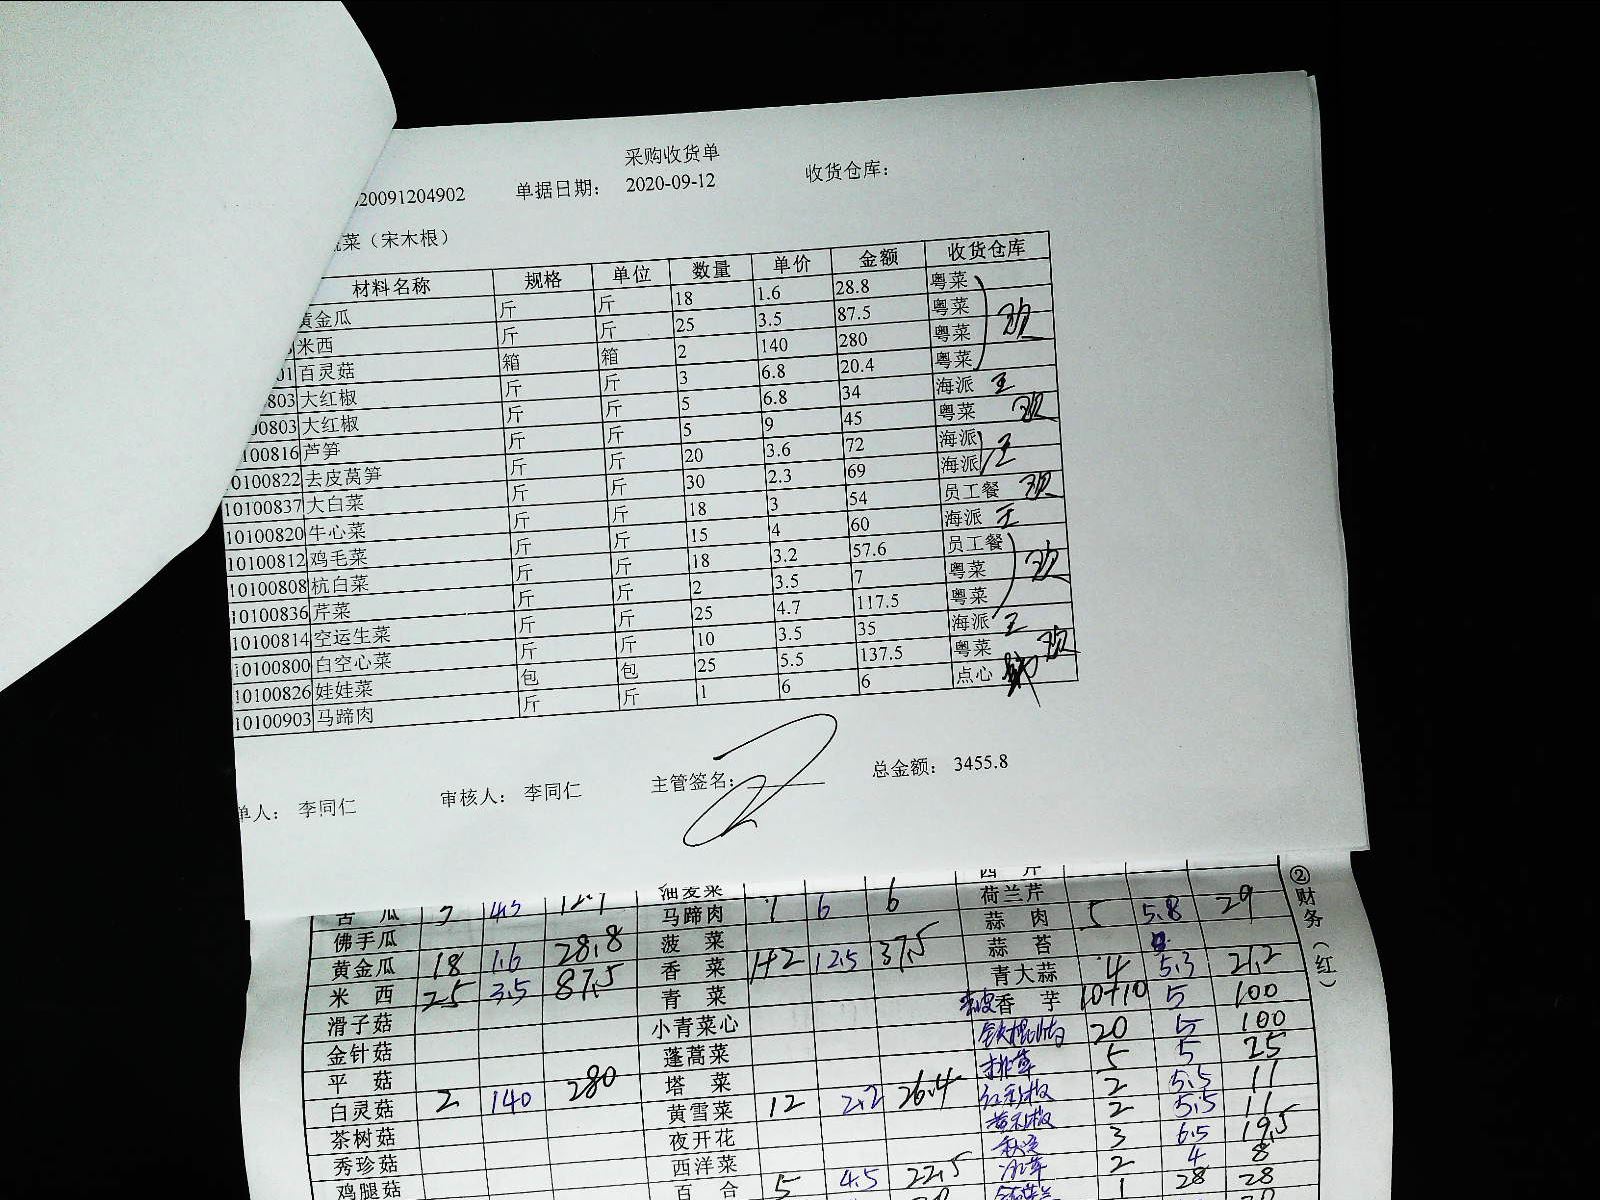 采购收货单
20091204902 单据日期： 2020-09-12 收货仓库：
菜（宋木根）
材料名称 规格 单位 数量 单价 金额 收货仓库
黄金瓜 斤 斤 18 1.6 28.8 粤菜
米西 斤 斤 25 3.5 87.5 粤菜
01 百灵菇 箱 箱 2 140 280 粤菜
803 大红椒 斤 斤 3 6.8 20.4 粤菜
0803 大红椒 斤 斤 5 6.8 34 海派 王
100816 芦笋 斤 斤 5 9 45 粤菜
10100822 去皮莴笋 斤 斤 20 3.6 72 海派
10100837 大白菜 斤 斤 30 2.3 69 海派 王
10100820 牛心菜 斤 斤 18 3 54 员工餐
10100812 鸡毛菜 斤 斤 15 4 60 海派 王
10100808 杭白菜 斤 斤 18 3.2 57.6 员工餐
10100836 芹菜 斤 斤 2 3.5 7 粤菜
10100814 空运生菜 斤 斤 25 4.7 117.5 粤菜
10100800 白空心菜 斤 斤 10 3.5 35 海派 王
10100826 娃娃菜 包 包 25 5.5 137.5 粤菜
10100903 马蹄肉 斤 斤 1 6 6 点心
单人： 李同仁 审核人： 李同仁 主管签名： 总金额： 3455.8
油麦菜 西芹
苦瓜 马蹄肉 1 6 6 荷兰芹
佛手瓜 菠菜 蒜肉 5 5.8 29
黄金瓜 18 1.6 28.8 香菜 1+2 12.5 37.5 蒜苔
米西 25 3.5 87.5 青菜 青大蒜 4 5.3 21.2
滑子菇 小青菜心 去皮香芋 10+10 5 100
金针菇 蓬蒿菜 20 5 100
平菇 塔菜 5 5 25
白灵菇 2 140 280 黄雪菜 12 2.2 26.4 红彩椒 2 5.5 11
茶树菇 夜开花 黄彩椒 2 5.5 11
秀珍菇 西洋菜 秋葵 3 6.5 19.5
鸡腿菇 百合 5 4.5 22.5 2 4 8
1 28 28
②财务（红）